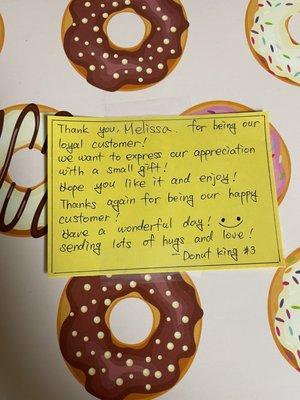 Thank you, Melissa. for being our
loyal customer!
we want to express our appreciation
with a small gift!
Hope you like it and enjoy!
Thanks again for being our happy
customer!
Have a wonderful day!
sending lots of hugs and love!
- Donut King #3